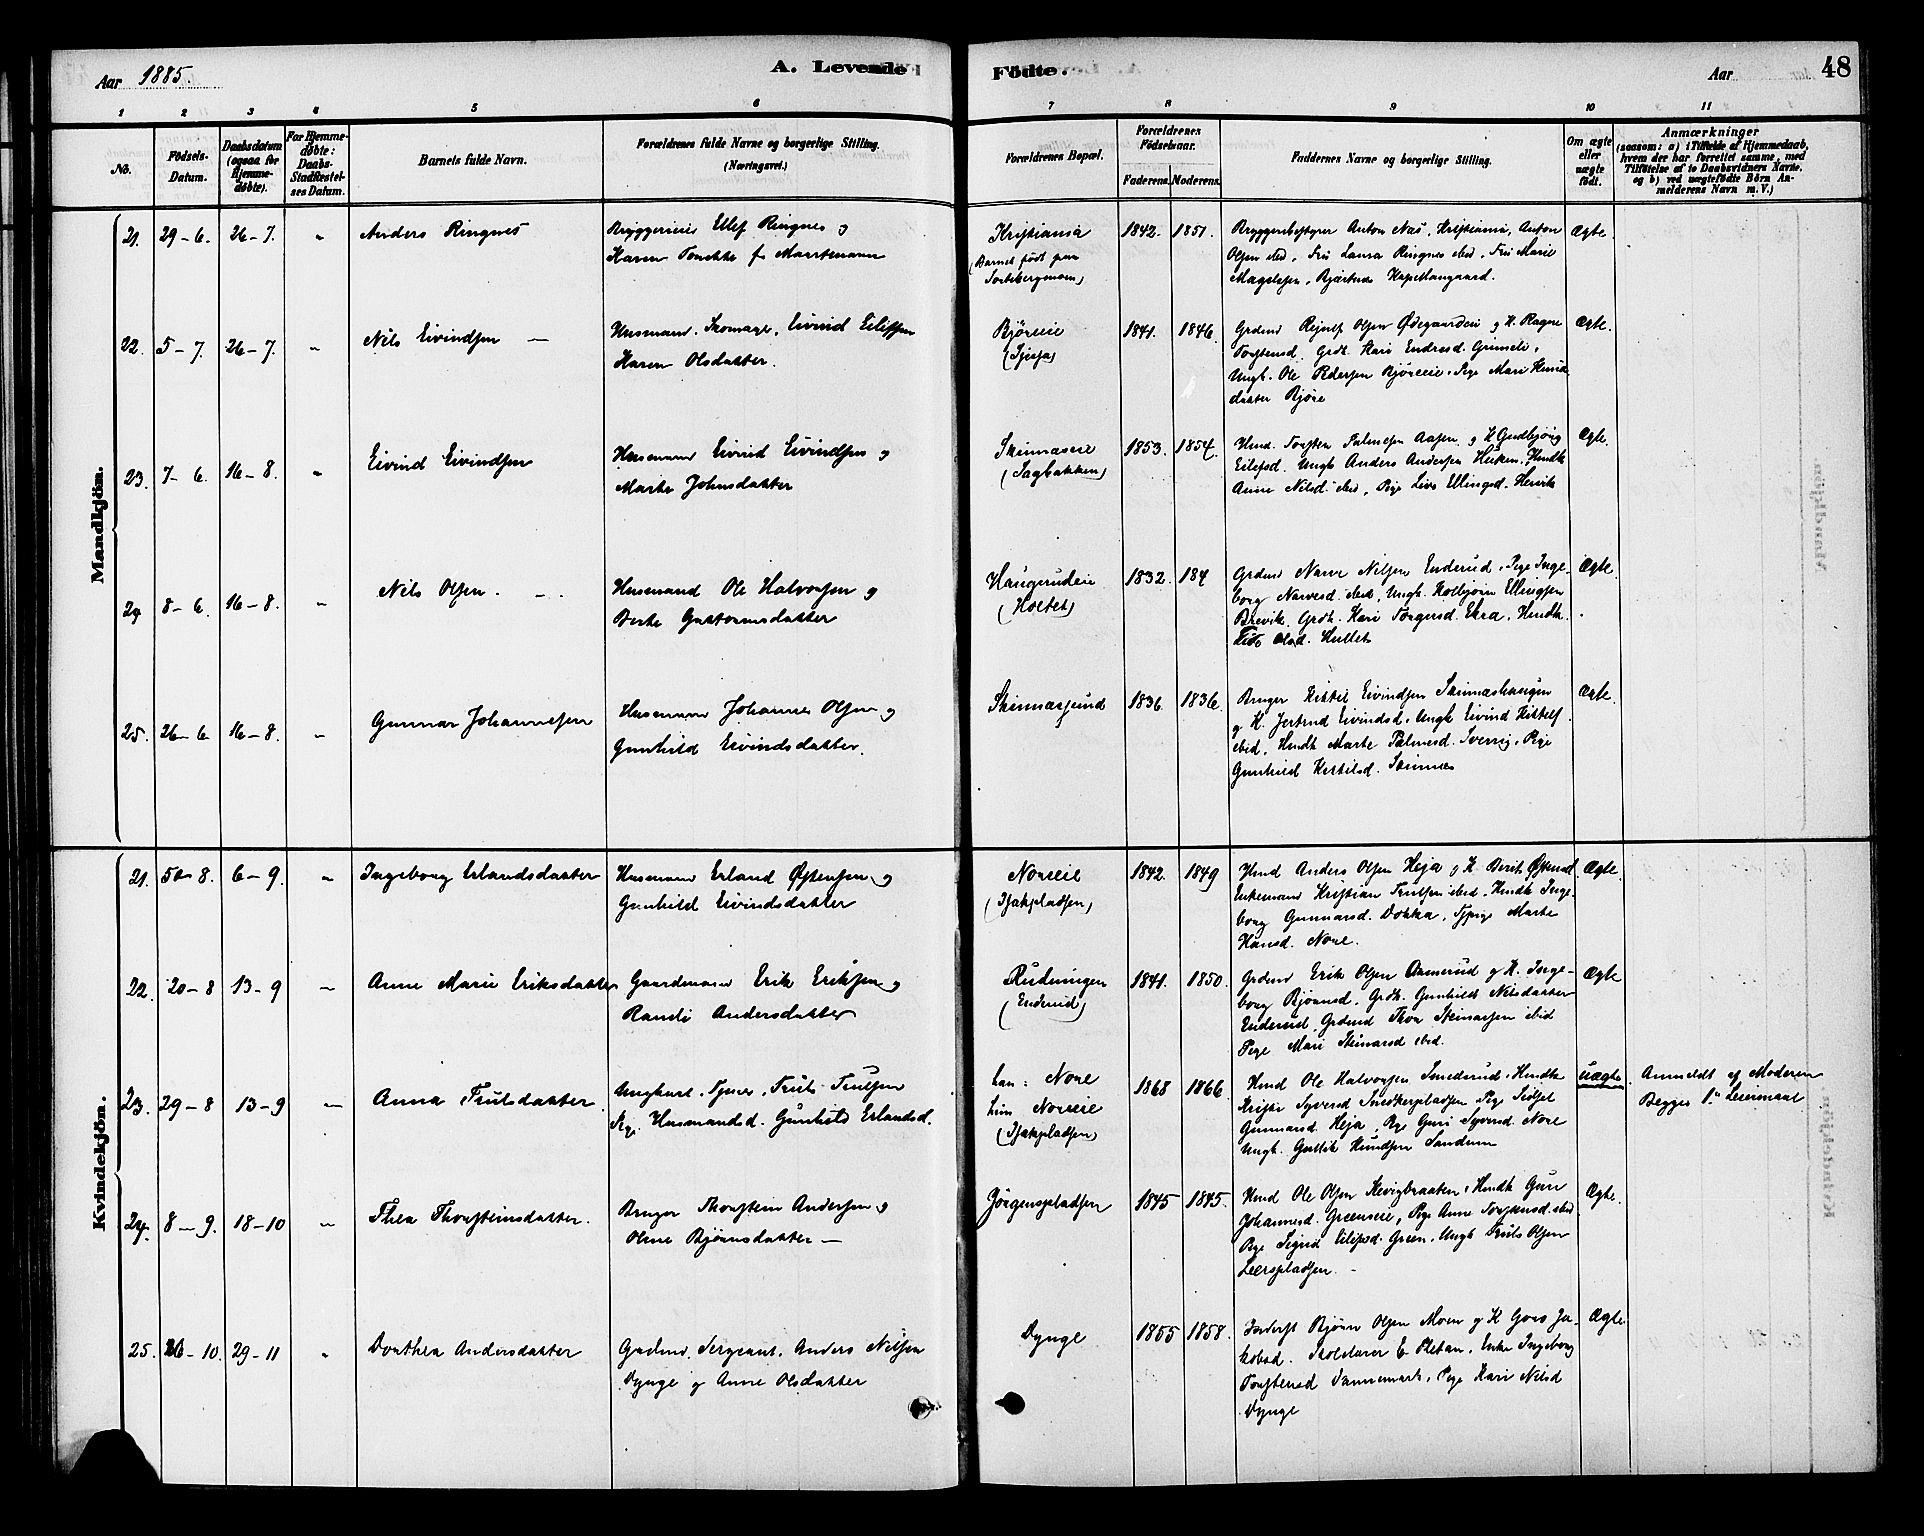 Aar 1885.
A. Levende
Födte.
Aar
48
1 2 3 4 5 6 7 8 9 10 11
No.
Födsels-Datum.
Daabsdatum (ogsaa for Hjemme-döbte).
For Hjemme-döbte: Daabs-Stadfæstel-ses Datum.
Barnets fulde Navn.
Forældrenes fulde Navne og borgerlige Stilling. (Næringsvei.)
Forældrenes Bopæl.
Forældrenes Födselsaar.
Faderens. Moderens.
Faddernes Navne og borgerlige Stilling.
Om ægte eller uægte födt.
Anmærkninger
(saasom: a) i Tilfælde af Hjemmedaab,
hvem der har forrettet samme, med
Tilföielse af to Daabsvidners Navne,
og b) ved uægtefödte Börn An-
melderens Navn m. V.)
Mandkjön.
21. 29-6. 26-7. " Anders Ringnes
Bryggerieier Ellef Ringnes og
Karen f.
Kristiania
(Barnet født paa
1842. 1851.
Bryggeribestyrer Anton Næs, Kristiania, Anton
Olsen ibid, Fru Laura Ringnes ibid, Fru Marie
Kapellangaard.
Ægte.
22. 5-7. 26-7. " Nils Eivindsen
Husmand, Skomager, Eivind Eilifsen
Karen Olsdatter.
Björeeie
1841. 1846.
Grdmd Olsen Ødegaarden og K. Ragne
Torstensd. Grdk. Kari Endresd. Grimeli,
Ungk. Ole Pedersen Björeeie, Pige Mari
datter Björe
Ægte.
23. 7-6. 16-8. " Eivind Eivindsen
Husmand Eivind Eivindsen og
Marte Johnsdatter
Skinneseie
(Sagbakken)
1853. 1854.
Hmd. Torsten Palmesen Aasen og K. Gudbjörg
Eilefsd. Ungk Anders Andersen
Anne Nilsd. ibid, Pige Live Ellingsd.
Ægte.
24 8-6. 16-8. " Nils Olsen.
Husmand Ole Halvorsen og
Berte Guttormsdatter
Haugerudeie
(Holtet)
1832. 184
Grdmd Narve Nilsen Enderud, Pige Inge-
borg Narvesd. ibid, Ungk. Kolbjörn Ellingsen
Brevik. Grdk. Kari Torgersd. Ekra, Hmdk.
Olsd. Holtet
Ægte.
25. 26-6 16-8. " Gunnar Johannesen
Husmand Johannes Olsen og
Gunhild Eivindsdatter.
1836. 1836.
Bruger Kittil Eivindsen Skinneshaugen
og K. Jertrud Eivindsd. Ungk Eivind Kittels.
ibid, Hmdk Marte Palmesd. Pige
Gunhild Kittilsd. Skinnes
Ægte.
Kvindekjön.
21. 8. 6-9. " Ingeborg Erlandsdatter
Husmand Erland Østensen og
Gunhild Eivindsdatter
Noreeie
(Isakpladsen)
1842. 1849
Hmd Anders Olsen Heja og K. Berit
Enkemand Kristian Trulsen ibid, Hmdk Inge-
borg Gunnarsd. Dokka, Tjpige Marte
Hansd. Nore.
Ægte.
22. 20-8 13-9 " Anne Marie Eriksdatter
Gaardmand Erik Eriksen og
Randi Andersdatter
Rudningen
(Enderud)
1841. 1850.
Grdmd Erik Olsen og K. Inge-
borg Björnsd. Grdk. Gunhild Nilsdatter
Enderud, Grdmd Thor Steinarsen ibid
Pige Mari Steinarsd ibid.
Ægte
23. 29-8 13-9 " Anna Trulsdatter
Ungkarl, Tjener, Truls Trulsen
Pige Husmandsd. Gunhild Erlandsd.
han: Nore
hun Noreeie
(Isakpladsen)
1868 1866.
Hmd Ole Halvorsen Smedsrud, Hmdk
Kristi Syversd Snedkerpladsen Pige Sidsel
Gunnarsd Heja, Pige Guri Syversd. Nore
Ungk. Gullik Knudsen
uægte.
Anmeldt af Moderen
Begges 1ste Leiermaal
24. 8-9. 18-10 " Thea Thorsteinsdatter.
Bruger Thorstein Andersen og
Oline Björnsdatter
Jörgenspladsen
1845 1845.
Hmd Ole Olsen Hmdk Guri
Johannesd. Greeneeie, Pige Anne Torstensd. ibid
Pige Sigrid Eilifsd. Green. Ungk Truls Olsen
Leerspladsen.
Ægte.
25. 26-10. 29-11 " Dorthea Andersdatter
Gaardmd. Sergeant, Anders Nilsen
Dynge og Anne Olsdatter
Dynge
1855 1858.
Björn Olsen Moen og K Goro Ja-
kobsd. Skolelærer E. Pletan, Enke Ingeborg
Torstensd Dannemark, Pige Kari Nilsd
Dynge
Ægte